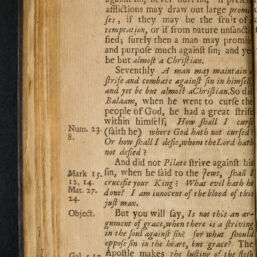 afflictions may draw out large promi-
ses, if they may be the fruit of
temptation, or if from nature unsancti-
fied; surely then a man may promise
and purpose much against sin; and yet
be but almost a Christian.
Seventhly A man may maintain a
strife and combate against sin in himself
and yet be but almost a Christian. So did
Balaam, when he went to curse the
people of God, he had a great strife
within himself; How shall I curse
Num. 23. 8.
(saith he) where God hath not cursed?
Or how shall I defie, whom the Lord hath
not defied?
And did not Pilate strive against his
Mark 15. 12, 14.
sin, when he said to the Jews, shall I
crucifie your King? What evil hath he
Mat. 27. 24.
done? I am innocent of the blood of this
just man.
Object.
But you will say, Is not this an ar-
gument of grace, when there is a striving
in the soul against sin? for what should
oppose sin in the heart, but grace? The
Apostle makes the lusting of the flesh